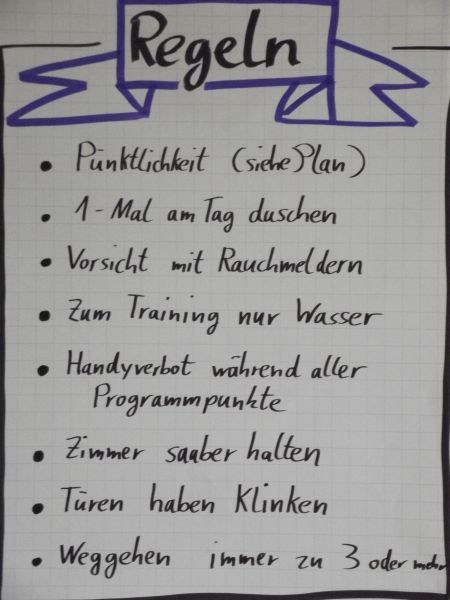 Regeln
• Pünktlichkeit (siehe Plan)
• 1-Mal am Tag duschen
• Vorsicht mit Rauchmeldern
• Zum Training nur Wasser
• Handyverbot während aller
Programmpunkte
• Zimmer sauber halten
• Türen haben Klinken
• Weggehen immer zu 3 oder mehr